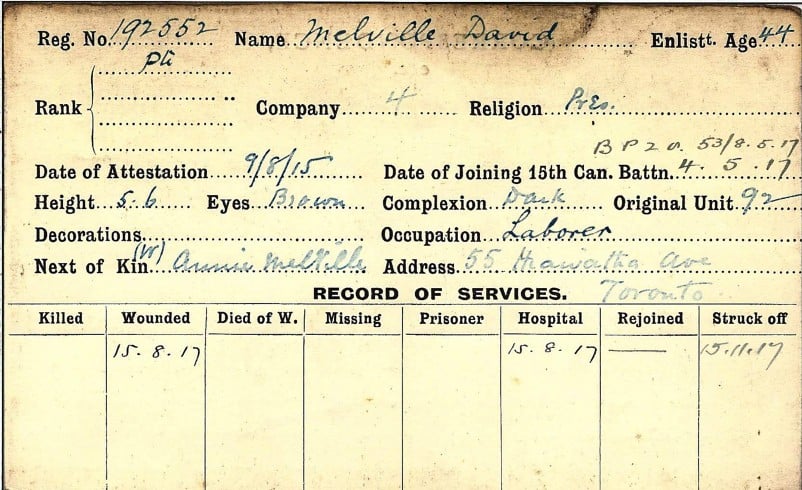 Reg. No. 192552 Name Melville David Enlistt. Age 44
Pte
Rank Company 4 Religion Pres.
B P 2 O. 53/8.5.17
Date of Attestation 9/8/15 Date of Joining 15th Can. Battn. 4. 5. 17
Height 5.6 Eyes Brown Complexion Dark Original Unit 92
Decorations Occupation Laborer
Next of Kin (W) Annie Melville Address 55 Hiawatha Ave
RECORD OF SERVICES. Toronto
Killed Wounded Died of W. Missing Prisoner Hospital Rejoined Struck off
15. 8. 17 15. 8. 17 — 15.11.17